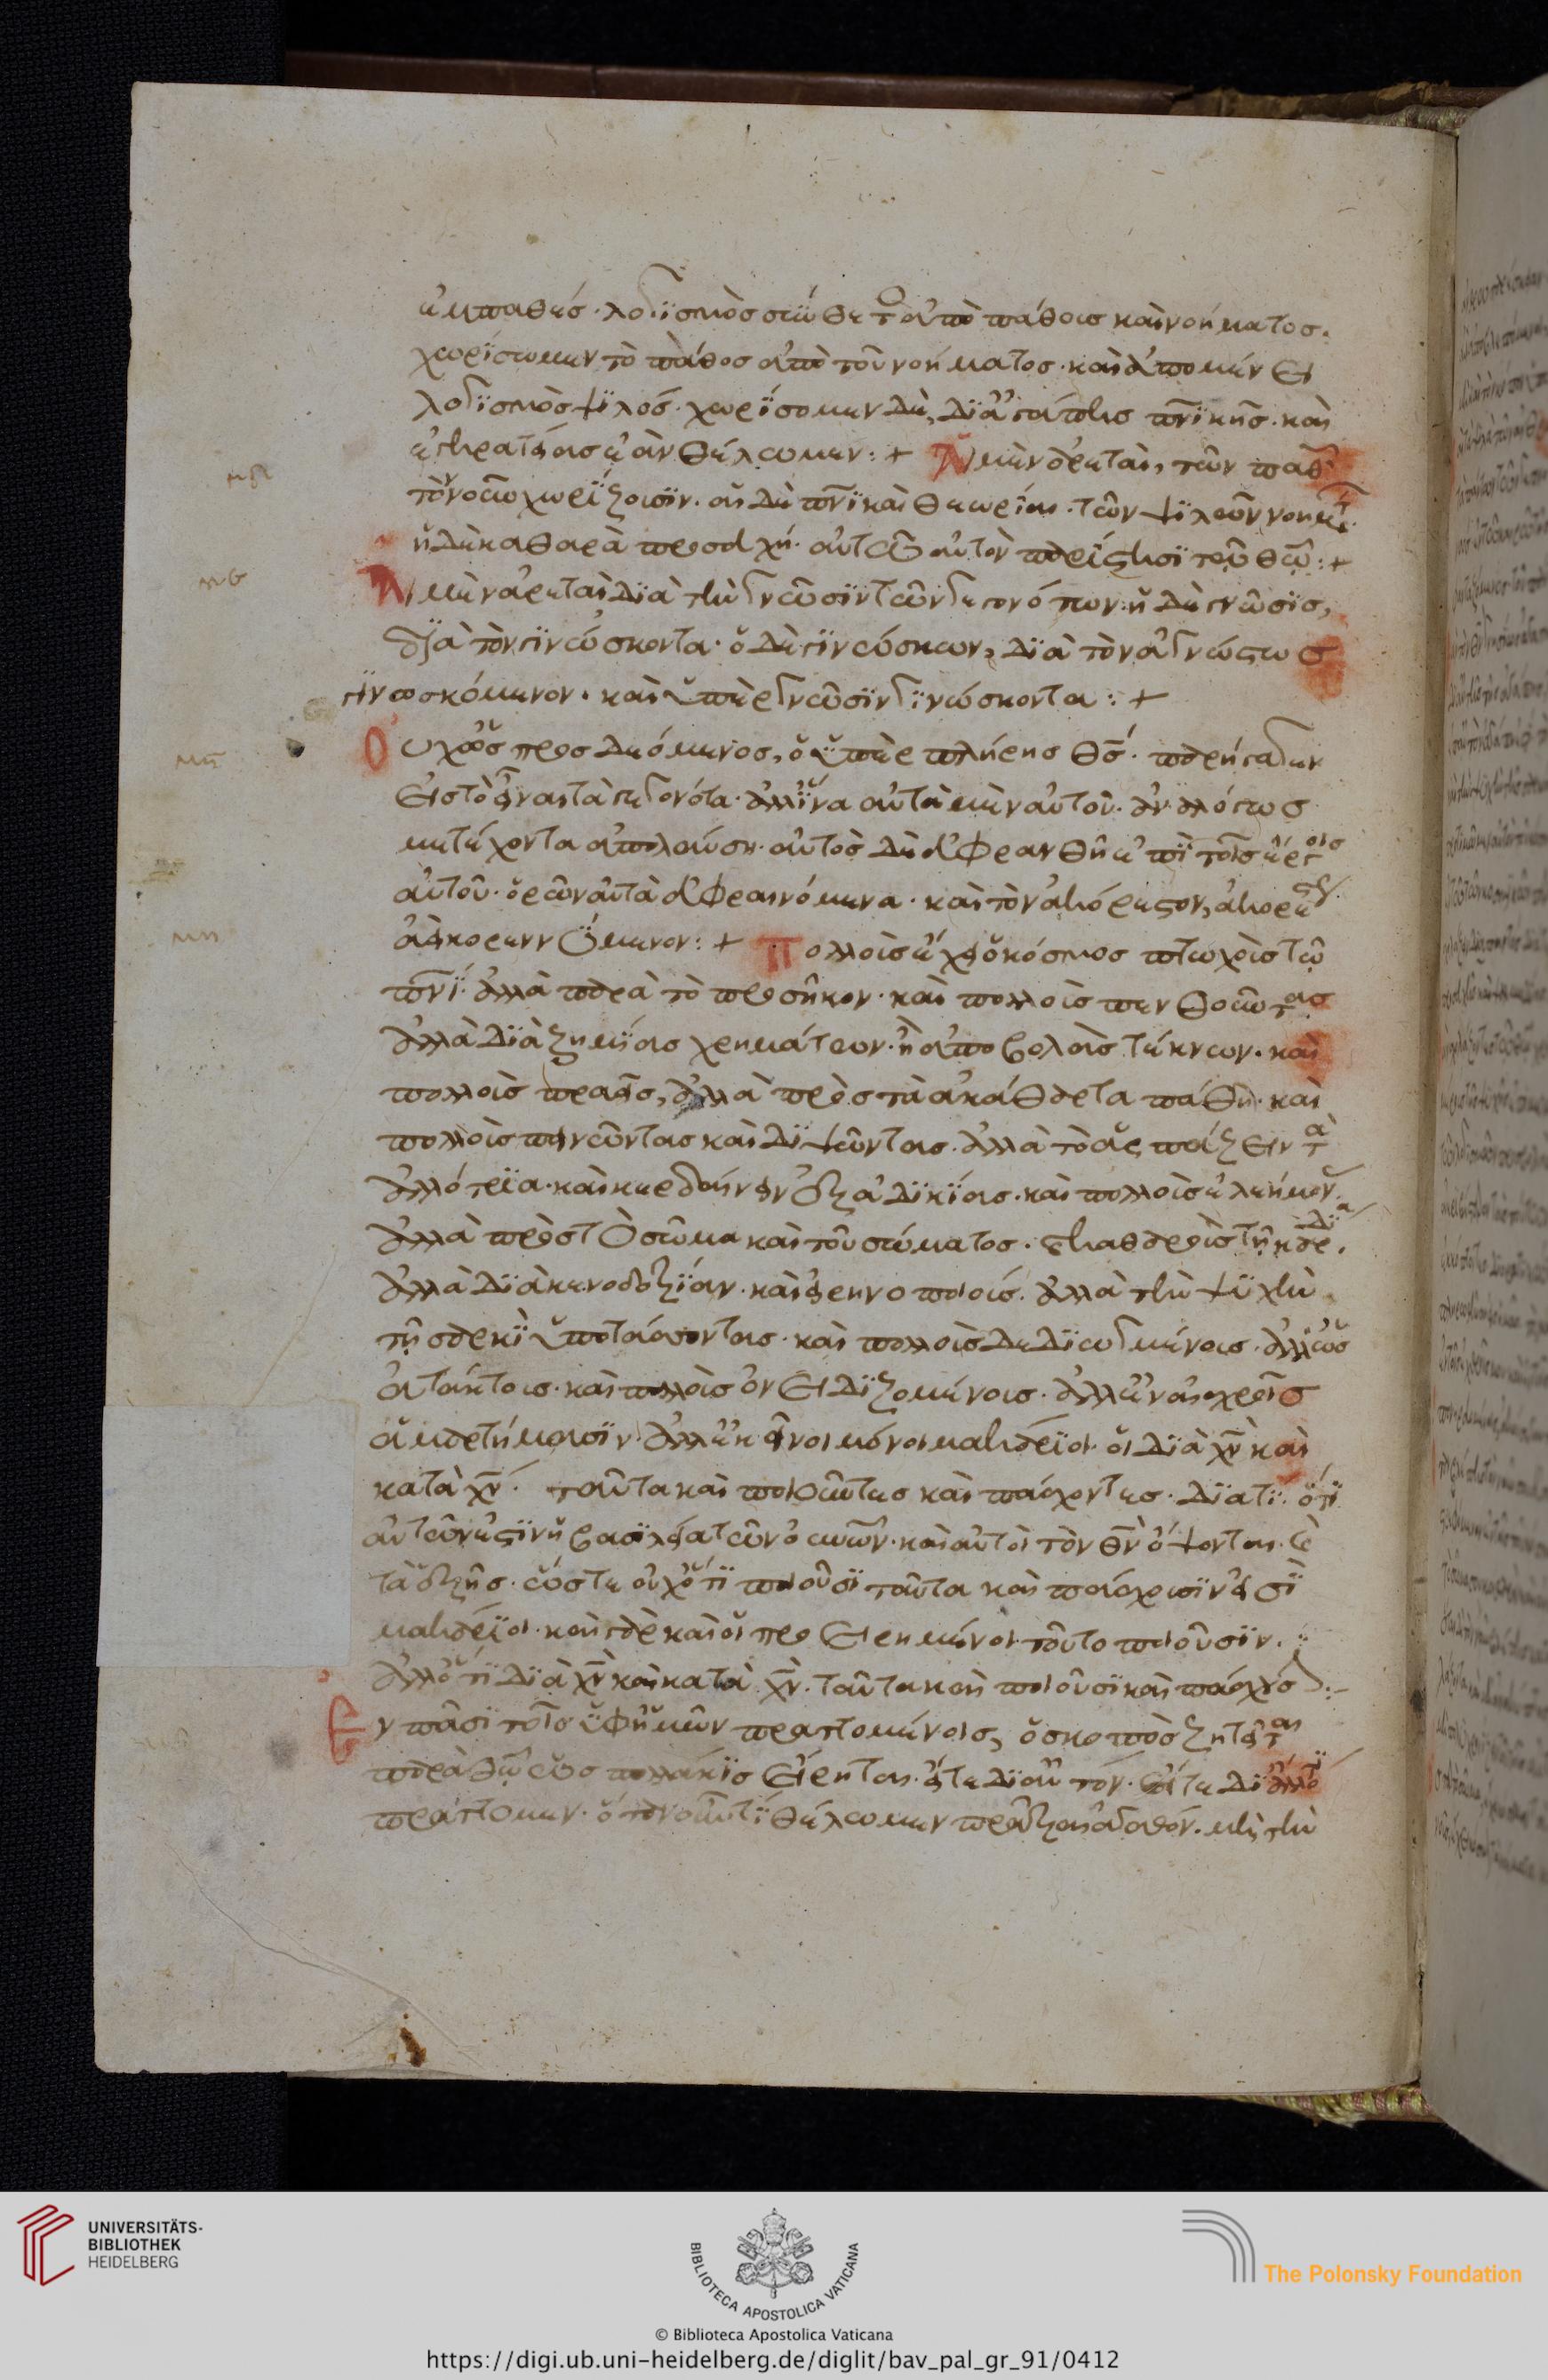 ἐμπαθής. λογϊσμὸς σύνθετος ἀπὸ πάθους καὶ νοήματος.
χωρίσωμεν τὸ πάθος ἀπὸ τοῦ νοήματος. καὶ ἀπομένει
λογϊσμὸς ψϊλός. χωρίσομεν δὲ, δϊ' ἀγάπης πνϊκῆς. καὶ
ἐγκρατείας ἐὰν θέλωμεν: + Αἱ μὲν ἀρεταὶ, τῶν παθ
τὸν νοῦν χωρΐζουσϊν. αἱ δὲ πνϊκαὶ θεωρίαι. τῶν ψϊλῶν νοημτ.
ἡ δὲ καθαρὰ προσευχή. αὐτῶ αὐτὸν παρίστησϊ τῷ θῶ: +
Αἱ μὲν ἀρεταὶ δϊὰ τὴν γνῶσϊν τῶν γεγονότων. ἡ δὲ γνῶσϊς,
δϊὰ τὸν γϊνώσκοντα. ὁ δὲ γϊνώσκων, δϊὰ τὸν ἀγνώστως
γϊνωσκόμενον. καὶ ὑπὲρ γνῶσϊν γϊνώσκοντα: +
Οὐχ ὡς προσδεόμενος, ὁ ὑπὲρ πλήρης θς. παρήγαγεν
εἰς τὸ εἶναι τὰ γεγονότα. ἀλλ' ἵνα αὐτὰ μὲν αὐτοῦ. ἀναλόγως
μετέχοντα ἀπολαύση. αὐτὸς δὲ εὐφρανθῆ ἐπὶ τοῖς ἔργοις
αὐτοῦ. ὁρῶν αὐτὰ εὐφραινόμενα. καὶ τὸν ἀκόρεστον, ἀκορέστ
ἀεὶ κορεννύμενον: + Πολλοὺς ἔχει ὁ κόσμος πτωχοὺς τῶ
πνϊ. ἀλλὰ παρὰ τὸ προσῆκον. καὶ πολλοὺς πενθοῦντας
ἀλλὰ δϊὰ ζημϊας χρημάτων. ἢ ἀποβολὰς τέκνων. καὶ
πολλοὺς πραεῖς, ἀλλὰ πρὸς τὰ ἀκάθαρτα πάθη. καὶ
πολλοὺς πεινῶντας καὶ δϊψῶντας. ἀλλὰ τὸ ἁρπάζειν τὰ
ἀλλότρϊα. καὶ κερδαίνειν ἐξ ἀδϊκΐας. καὶ πολλοὺς ἐλεήμον
ἀλλὰ πρὸς τὸ σῶμα καὶ τοῦ σώματος. καὶ καθαροὺς τῇ καρδϊα.
ἀλλὰ δϊὰ κενοδοξΐαν. καὶ εἰρηνοποιούς. ἀλλὰ τὴν ψϋχὴν
τῇ σαρκὶ ὑποτάσσοντας. καὶ πολλοὺς δεδϊωγμένους. ἀλλ' ὡς
ἀτάκτους. καὶ πολλοὺς ὀνειδϊζομένους. ἀλλ' ἐν αἰσχροῖς
ἁμαρτήμασϊν. ἀλλ' ἐκεῖνοι μόνοι μακάρϊοι. οἱ δϊὰ χν καὶ
κατὰ χν. ταῦτα καὶ ποιοῦντες καὶ πάσχοντες. δϊατϊ. ὅτϊ
αὐτῶν ἐστϊν ἡ βασϊλεία τῶν οὐνῶν. καὶ αὐτοὶ τὸν θν ὄψονται. καὶ
τὰ ἑξῆς. ὥστε οὐχ ὅτϊ ποιοῦσϊ ταῦτα καὶ πάσχουσϊν εἰσϊ
μακάρϊοι. καὶ γὰρ καὶ οἱ προειρημένοι τοῦτο ποιοῦσϊν.
ἀλλ' ὅτϊ δϊὰ χν καὶ κατὰ χν. ταῦτα καὶ ποιοῦσϊ καὶ πάσχουσ:-
Ἐν πᾶσϊ τοῖς ὑφ' ἡμῶν πραττομένοις, ὁ σκοπὸς ζητεῖται
παρὰ θῶ ὡς πολλάκϊς εἴρηται. εἴτε δϊ' αὐτόν. εἴτε δϊ' ἄλλό τϊ
πράττομεν. ὅταν οὖν τϊ θέλωμεν πρᾶξαι ἀγαθόν. μὴ τὴν
UNIVERSITÄTS-
BIBLIOTHEK
HEIDELBERG
BIBLIOTECA APOSTOLICA VATICANA
The Polonsky Foundation
© Biblioteca Apostolica Vaticana
https://digi.ub.uni-heidelberg.de/diglit/bav_pal_gr_91/0412